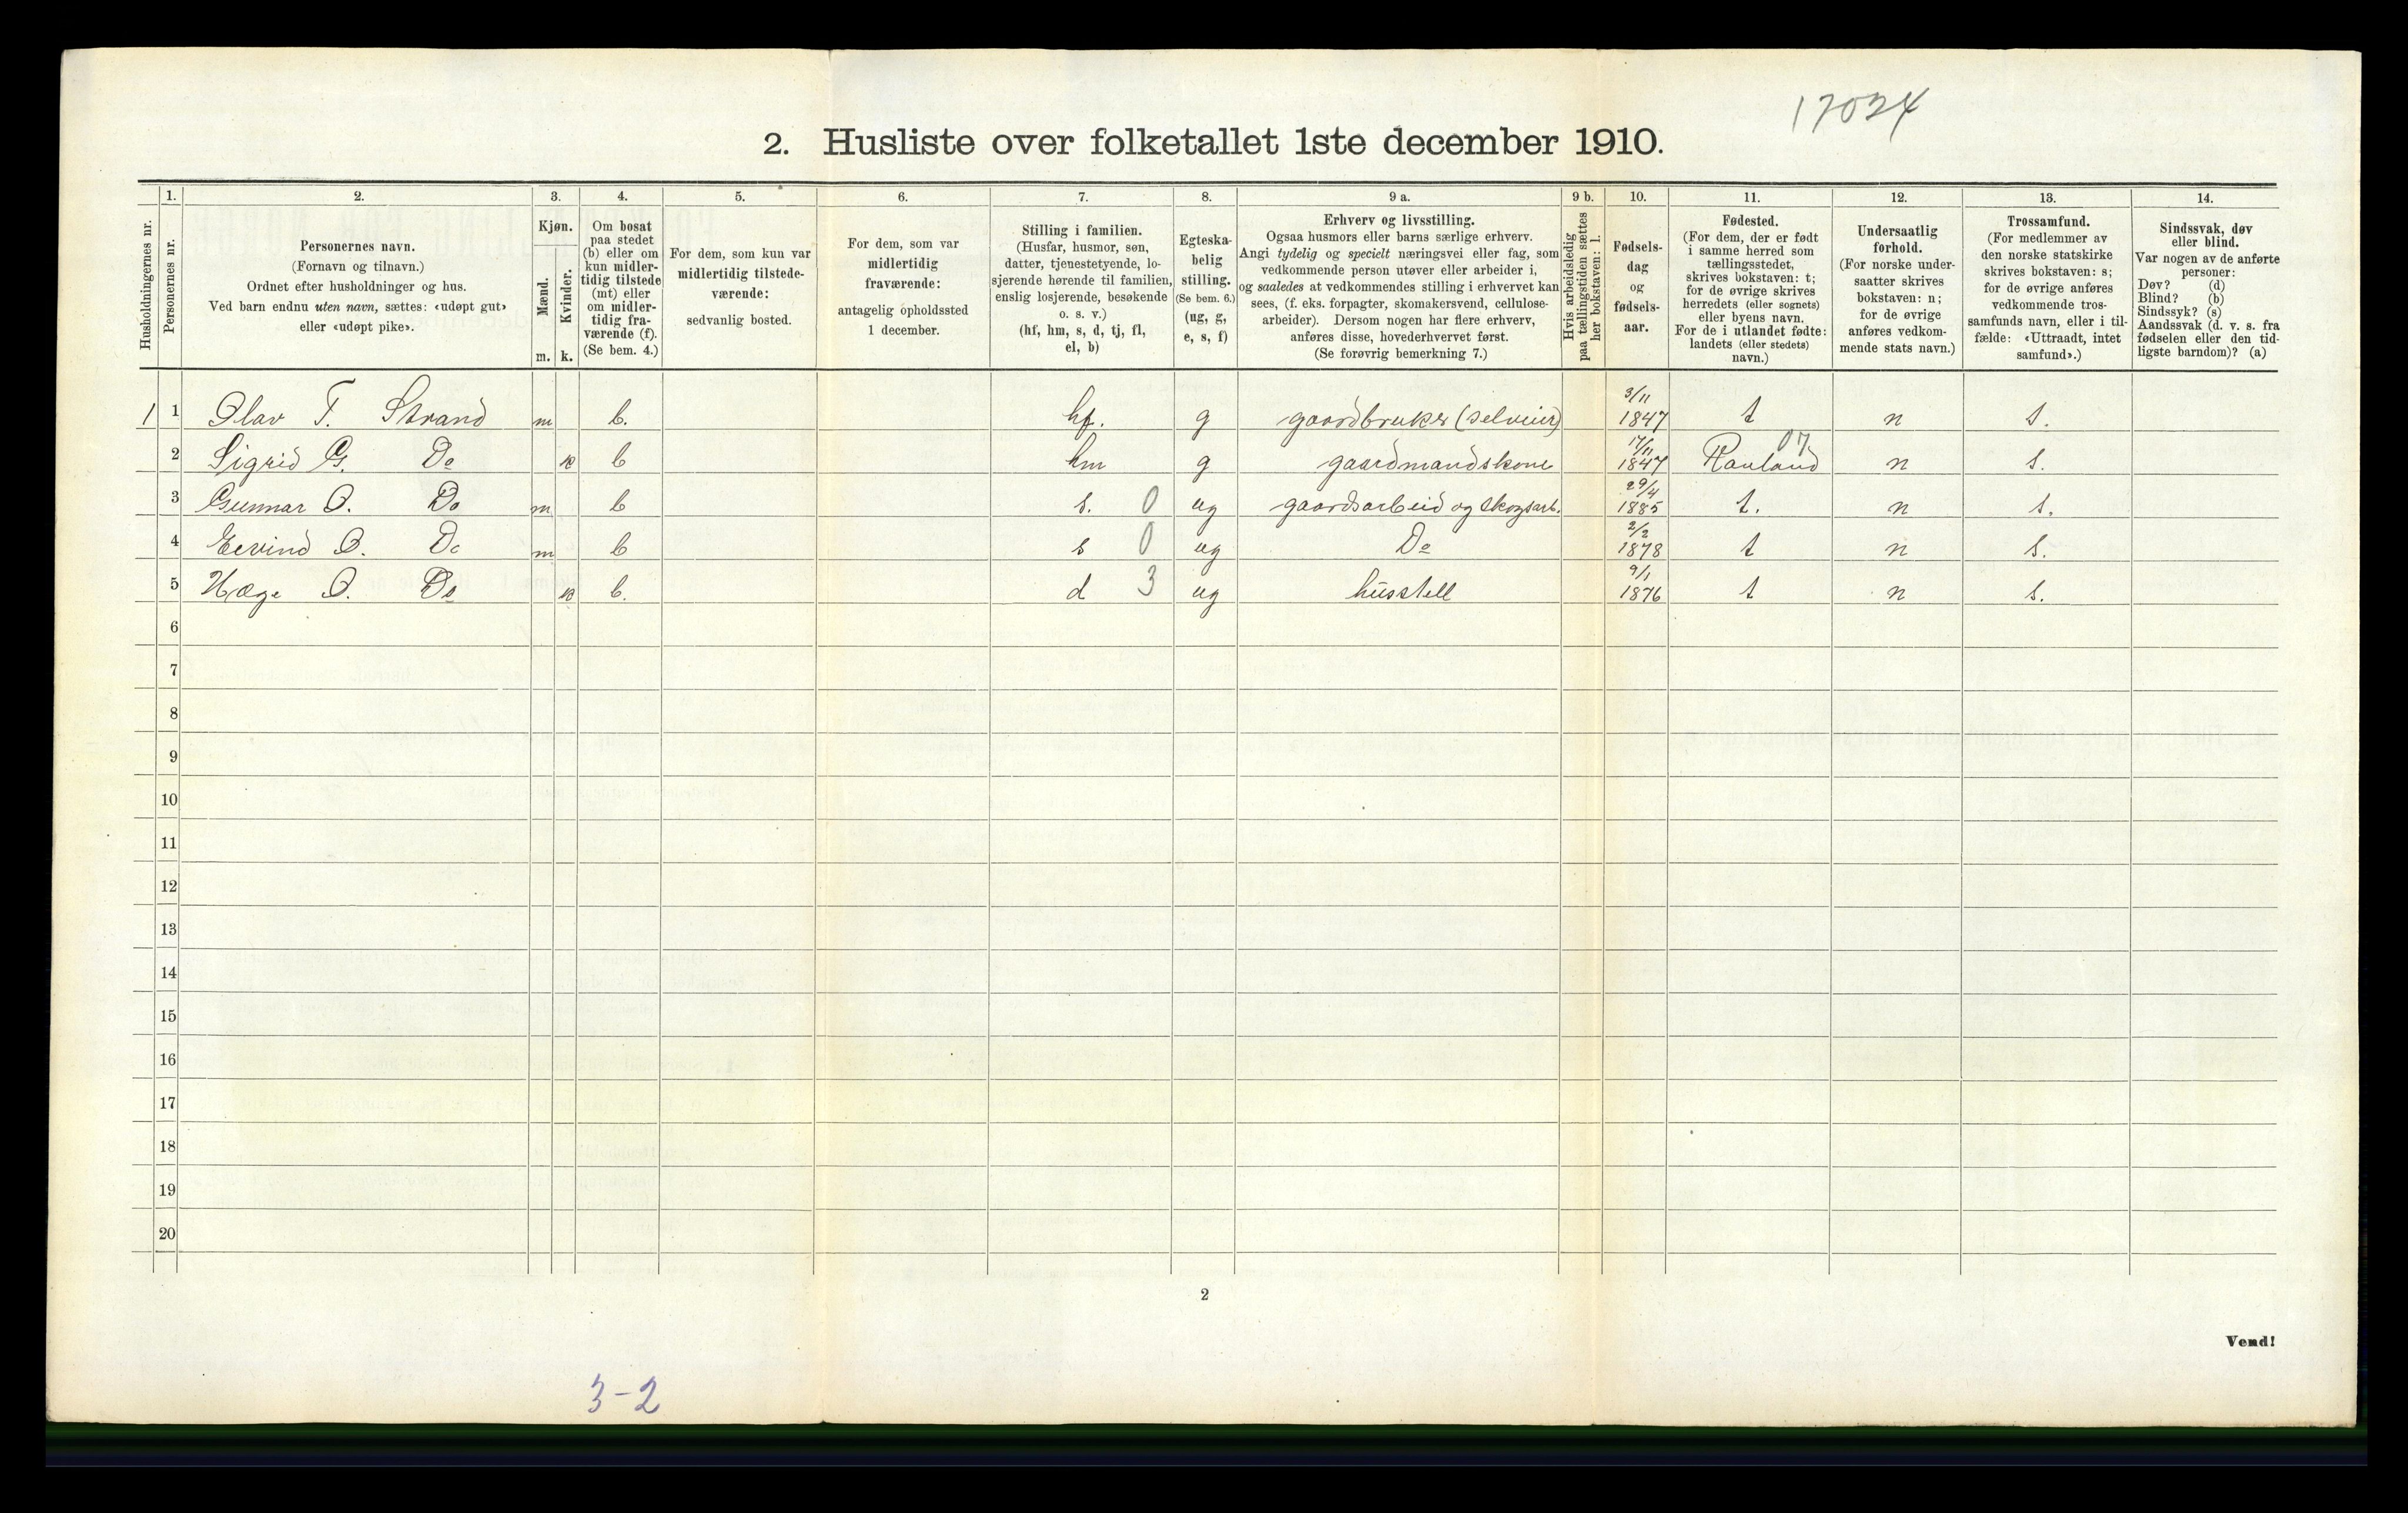 17024
2. Husliste over folketallet 1ste december 1910.
Husholdningernes nr.
1.
Personernes nr.
2.
Personernes navn.
(Fornavn og tilnavn.)
Ordnet efter husholdninger og hus.
Ved barn endnu uten navn, sættes: «udøpt gut»
eller «udøpt pike».
3.
Kjøn.
Mænd.
Kvinder.
m. k.
4.
Om bosat
paa stedet
(b) eller om
kun midler-
tidig tilstede
(mt) eller
om midler-
tidig fra-
værende (f).
(Se bem. 4.)
5.
For dem, som kun var
midlertidig tilstede-
værende:
sedvanlig bosted.
6.
For dem, som var
midlertidig
fraværende:
antagelig opholdssted
1 december.
7.
Stilling i familien.
(Husfar, husmor, søn,
datter, tjenestetyende, lo-
sjerende hørende til familien,
enslig losjerende, besøkende
o. s. v.)
(hf, hm, s, d, tj, fl,
el, b)
8.
Egteska-
belig
stilling.
(Se bem. 6.)
(ug, g,
e, s, f)
9 a.
Erhverv og livsstilling.
Ogsaa husmors eller barns særlige erhverv.
Angi tydelig og specielt næringsvei eller fag, som
vedkommende person utøver eller arbeider i,
og saaledes at vedkommendes stilling i erhvervet kan
sees, (f. eks. forpagter, skomakersvend, cellulose-
arbeider). Dersom nogen har flere erhverv,
anføres disse, hovederhvervet først.
(Se forøvrig bemerkning 7.)
9 b.
Hvis arbeidsledig
paa tællingstiden sættes
her bokstaven: l.
10.
Fødsels-
dag
og
fødsels-
aar.
11.
Fødested.
(For dem, der er født
i samme herred som
tællingsstedet,
skrives bokstaven: t;
for de øvrige skrives
herredets (eller sognets)
eller byens navn.
For de i utlandet fødte:
landets (eller stedets)
navn.)
12.
Undersaatlig
forhold.
(For norske under-
saatter skrives
bokstaven: n;
for de øvrige
anføres vedkom-
mende stats navn.)
13.
Trossamfund.
(For medlemmer av
den norske statskirke
skrives bokstaven: s;
for de øvrige anføres
vedkommende tros-
samfunds navn, eller i til-
fælde: «Uttraadt, intet
samfund».)
14.
Sindssvak, døv
eller blind.
Var nogen av de anførte
personer:
Døv? (d)
Blind? (b)
Sindssyk? (s)
Aandssvak (d. v. s. fra
fødselen eller den tid-
ligste barndom)? (a)
1 1 Olav T. Strand m b. hf. g gaardbruker (selveier) 3/11 1847 t n s.
2 Sigrid G. Do k b hm g gaardmandskone 17/11 1847 Rauland 07 n s.
3 Gunnar O. Do m b s. 0 ug gaardsarbeid og skogsarb. 29/4 1885 t. n s.
4 Eevind O. Do m b s 0 ug Do 2/2 1878 t n s.
5 Hæge O. Do k b. d 3 ug husstell 9/1 1876 t n s.
6
7
8
9
10
11
12
13
14
15
16
17
18
19
20
2
Vend!
3-2